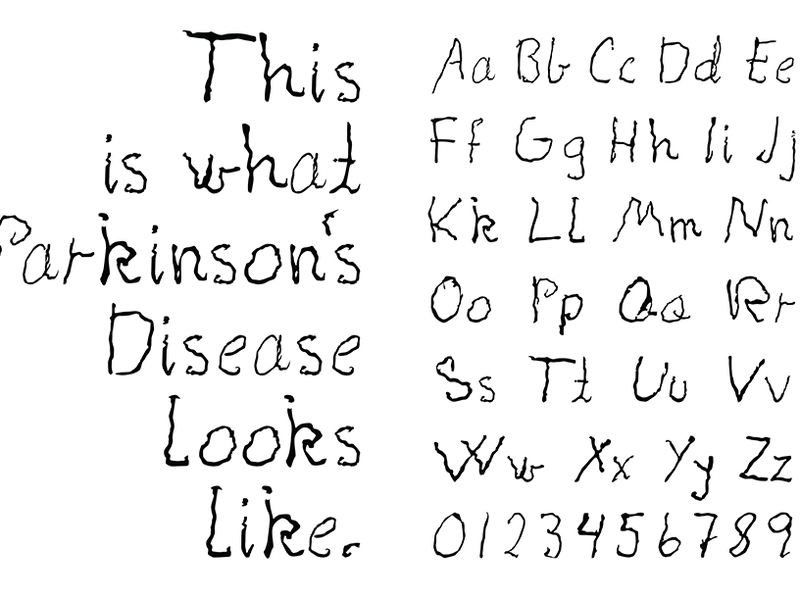 This
is what
Parkinson's
Disease
Looks
Like.
Aa Bb Cc Dd Ee
Ff Gg Hh Ii Jj
Kk Ll Mm Nn
Oo Pp Qq Rr
Ss Tt Uu Vv
Ww Xx Yy Zz
0123456789